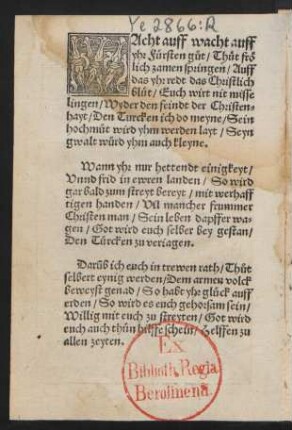 Ye 2866:R
Wacht auff wacht auff
yhr Fürsten gůt / Thůt frő
lich zamen springen / Auff
das yhr redt das Christlich
blůt / Euch wirt nit misse
lingen / Wyder den feindt der Christen-
hayt / Den Turcken ich do meyne / Sein
hochmůt wird yhm werden layt / Seyn
gwalt würd yhm auch kleyne.
Wann yhr nur hettendt einigkeyt /
Vnnd frid in ewren landen / So wird
gar bald zum streyt bereyt / mit werhaff
tigen handen / Vil mancher frummer
Christen man / Sein leben dapffer wa-
gen / Got wird euch selber bey gestan /
Den Türcken zu veriagen.
Darüb ich euch in trewen rath / Thůt
selbert eynig werden / Dem armen volck
beweyst genad / So habt yhr glück auff
erden / So wird es euch gehorsam sein /
Willig mit euch zu streyten / Got wird
euch auch thůn hilffe schein / Helffen zu
allen zeyten.
Ex
Biblioth. Regia
Berolinenſi.